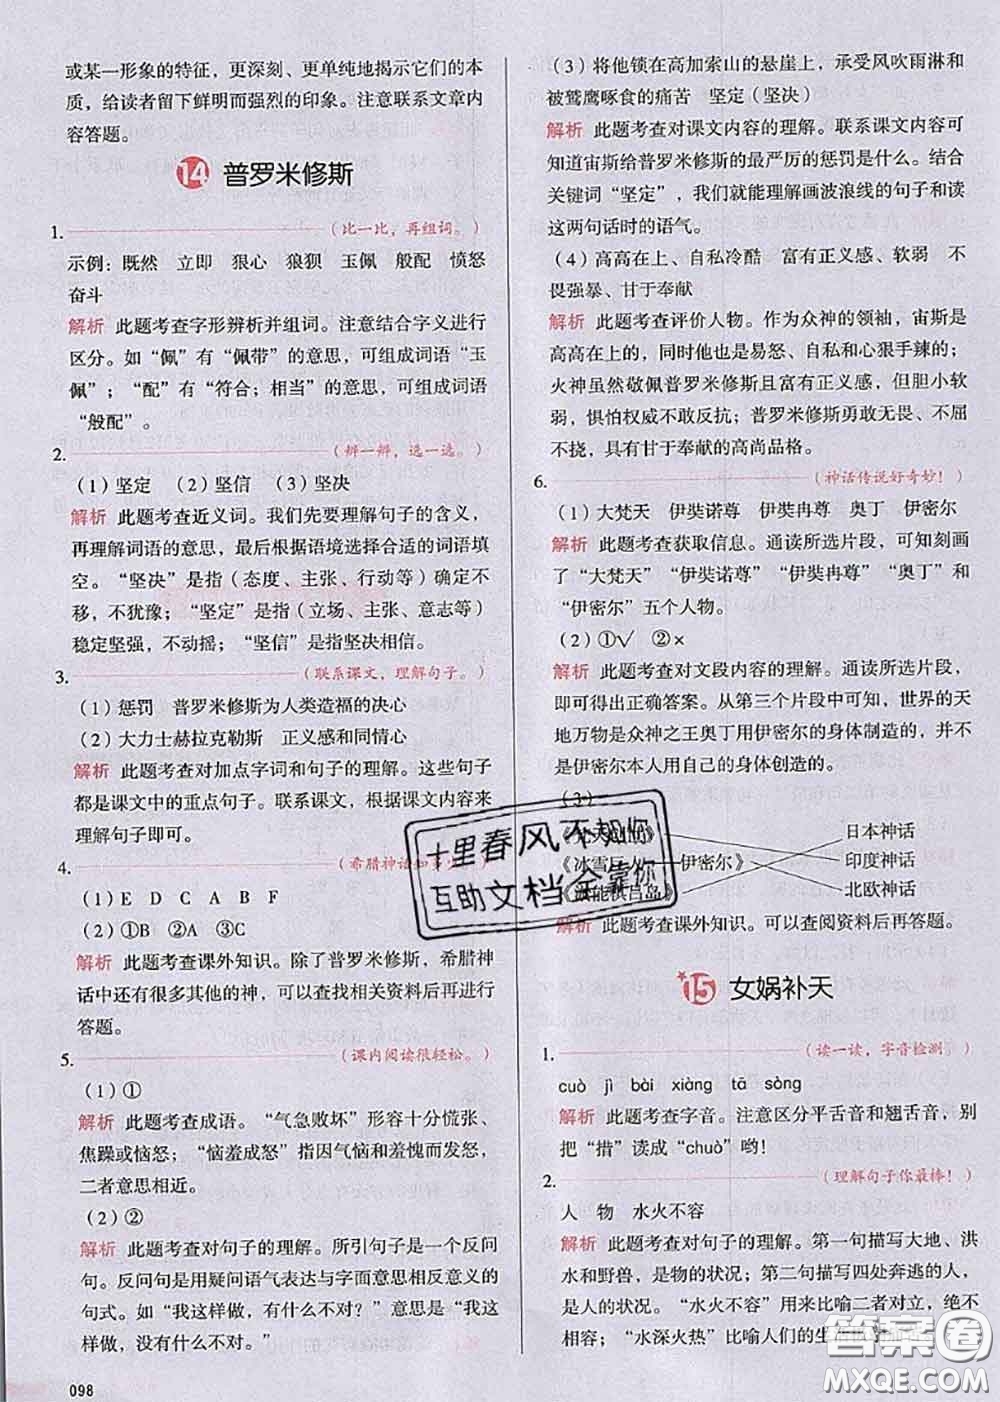 或某一形象的特征，更深刻、更单纯地揭示它们的本
质，给读者留下鲜明而强烈的印象。注意联系文章内
容答题。
14 普罗米修斯
1. （比一比，再组词。）
示例：既然 立即 狠心 狼狈 玉佩 般配 愤怒
奋斗
解析 此题考查字形辨析并组词。注意结合字义进行
区分。如“佩”有“佩带”的意思，可组成词语“玉
佩”；“配”有“符合；相当”的意思，可组成词语
“般配”。
2. （辨一辨，选一选。）
（1）坚定 （2）坚信 （3）坚决
解析 此题考查近义词。我们先要理解句子的含义，
再理解词语的意思，最后根据语境选择合适的词语填
空。“坚决”是指（态度、主张、行动等）确定不
移，不犹豫；“坚定”是指（立场、主张、意志等）
稳定坚强，不动摇；“坚信”是指坚决相信。
3. （联系课文，理解句子。）
（1）惩罚 普罗米修斯为人类造福的决心
（2）大力士赫拉克勒斯 正义感和同情心
解析 此题考查对加点字词和句子的理解。这些句子
都是课文中的重点句子。联系课文，根据课文内容来
理解句子即可。
4. （希腊神话知多少。）
（1）E D A B C F
（2）①B ②A ③C
解析 此题考查课外知识。除了普罗米修斯，希腊神
话中还有很多其他的神，查找相关资料后再进行
答题。
5. （课内阅读很轻松。）
（1）①
解析 此题考查成语。“气急败坏”形容十分慌张、
焦躁或恼怒；“恼羞成怒”指因气恼和羞愧而发怒，
二者意思相近。
（2）②
解析 此题考查对句子的理解。所引句子是一个反问
句。反问句是用疑问语气表达与字面意思相反意义的
句式。如“我这样做，有什么不对？”意思是“我这
样做，没有什么不对。”
098
（3）将他锁在高加索山的悬崖上，承受风吹雨淋和
被鹫鹰啄食的痛苦 坚定（坚决）
解析 此题考查对课文内容的理解。联系课文内容可
知道宙斯给普罗米修斯的最严厉的惩罚是什么。结合
关键词“坚定”，我们就能理解画波浪线的句子和读
这两句话时的语气。
（4）高高在上、自私冷酷 富有正义感、软弱 不
畏强暴、甘于奉献
解析 此题考查评价人物。作为众神的领袖，宙斯是
高高在上的，同时他也是易怒、自私和心狠手辣的；
火神虽然敬佩普罗米修斯且富有正义感，但胆小软
弱，惧怕权威不敢反抗；普罗米修斯勇敢无畏、不屈
不挠，具有甘于奉献的高尚品格。
6. （神话传说好奇妙！）
（1）大梵天 伊奘诺尊 伊奘冉尊 奥丁 伊密尔
解析 此题考查获取信息。通读所选片段，可知刻画
了“大梵天”“伊奘诺尊”“伊奘冉尊”“奥丁”和
“伊密尔”五个人物。
（2）①√ ②×
解析 此题考查对文段内容的理解。通读所选片段，
可得出正确答案。从第三个片段中可知，世界的天
地万物是众神之王奥丁用伊密尔的身体制造的，并不
是伊密尔本人用自己的身体创造的。
（3）
日本神话
《冰雪 伊密尔》 印度神话
北欧神话
解析 此题考查课外知识。可以查阅资料后再答题。
十里春风不如你
互助文档全靠你
15 女娲补天
1. （读一读，字音检测）
cuò jì bài xiàng tā sòng
解析 此题考查字音。注意区分平舌音和翘舌音，别
把“措”读成“chuò”哟！
2. （理解句子你最棒！）
人 物 水火不容
解析 此题考查对句子的理解。第一句描写大地、洪
水和野兽，是物的状况；第二句描写四处奔逃的人，
是人的状况。“水火不容”用来比喻二者对立，绝不
相容；“水深火热”比喻人们的生
答案圈
MXQE.COM